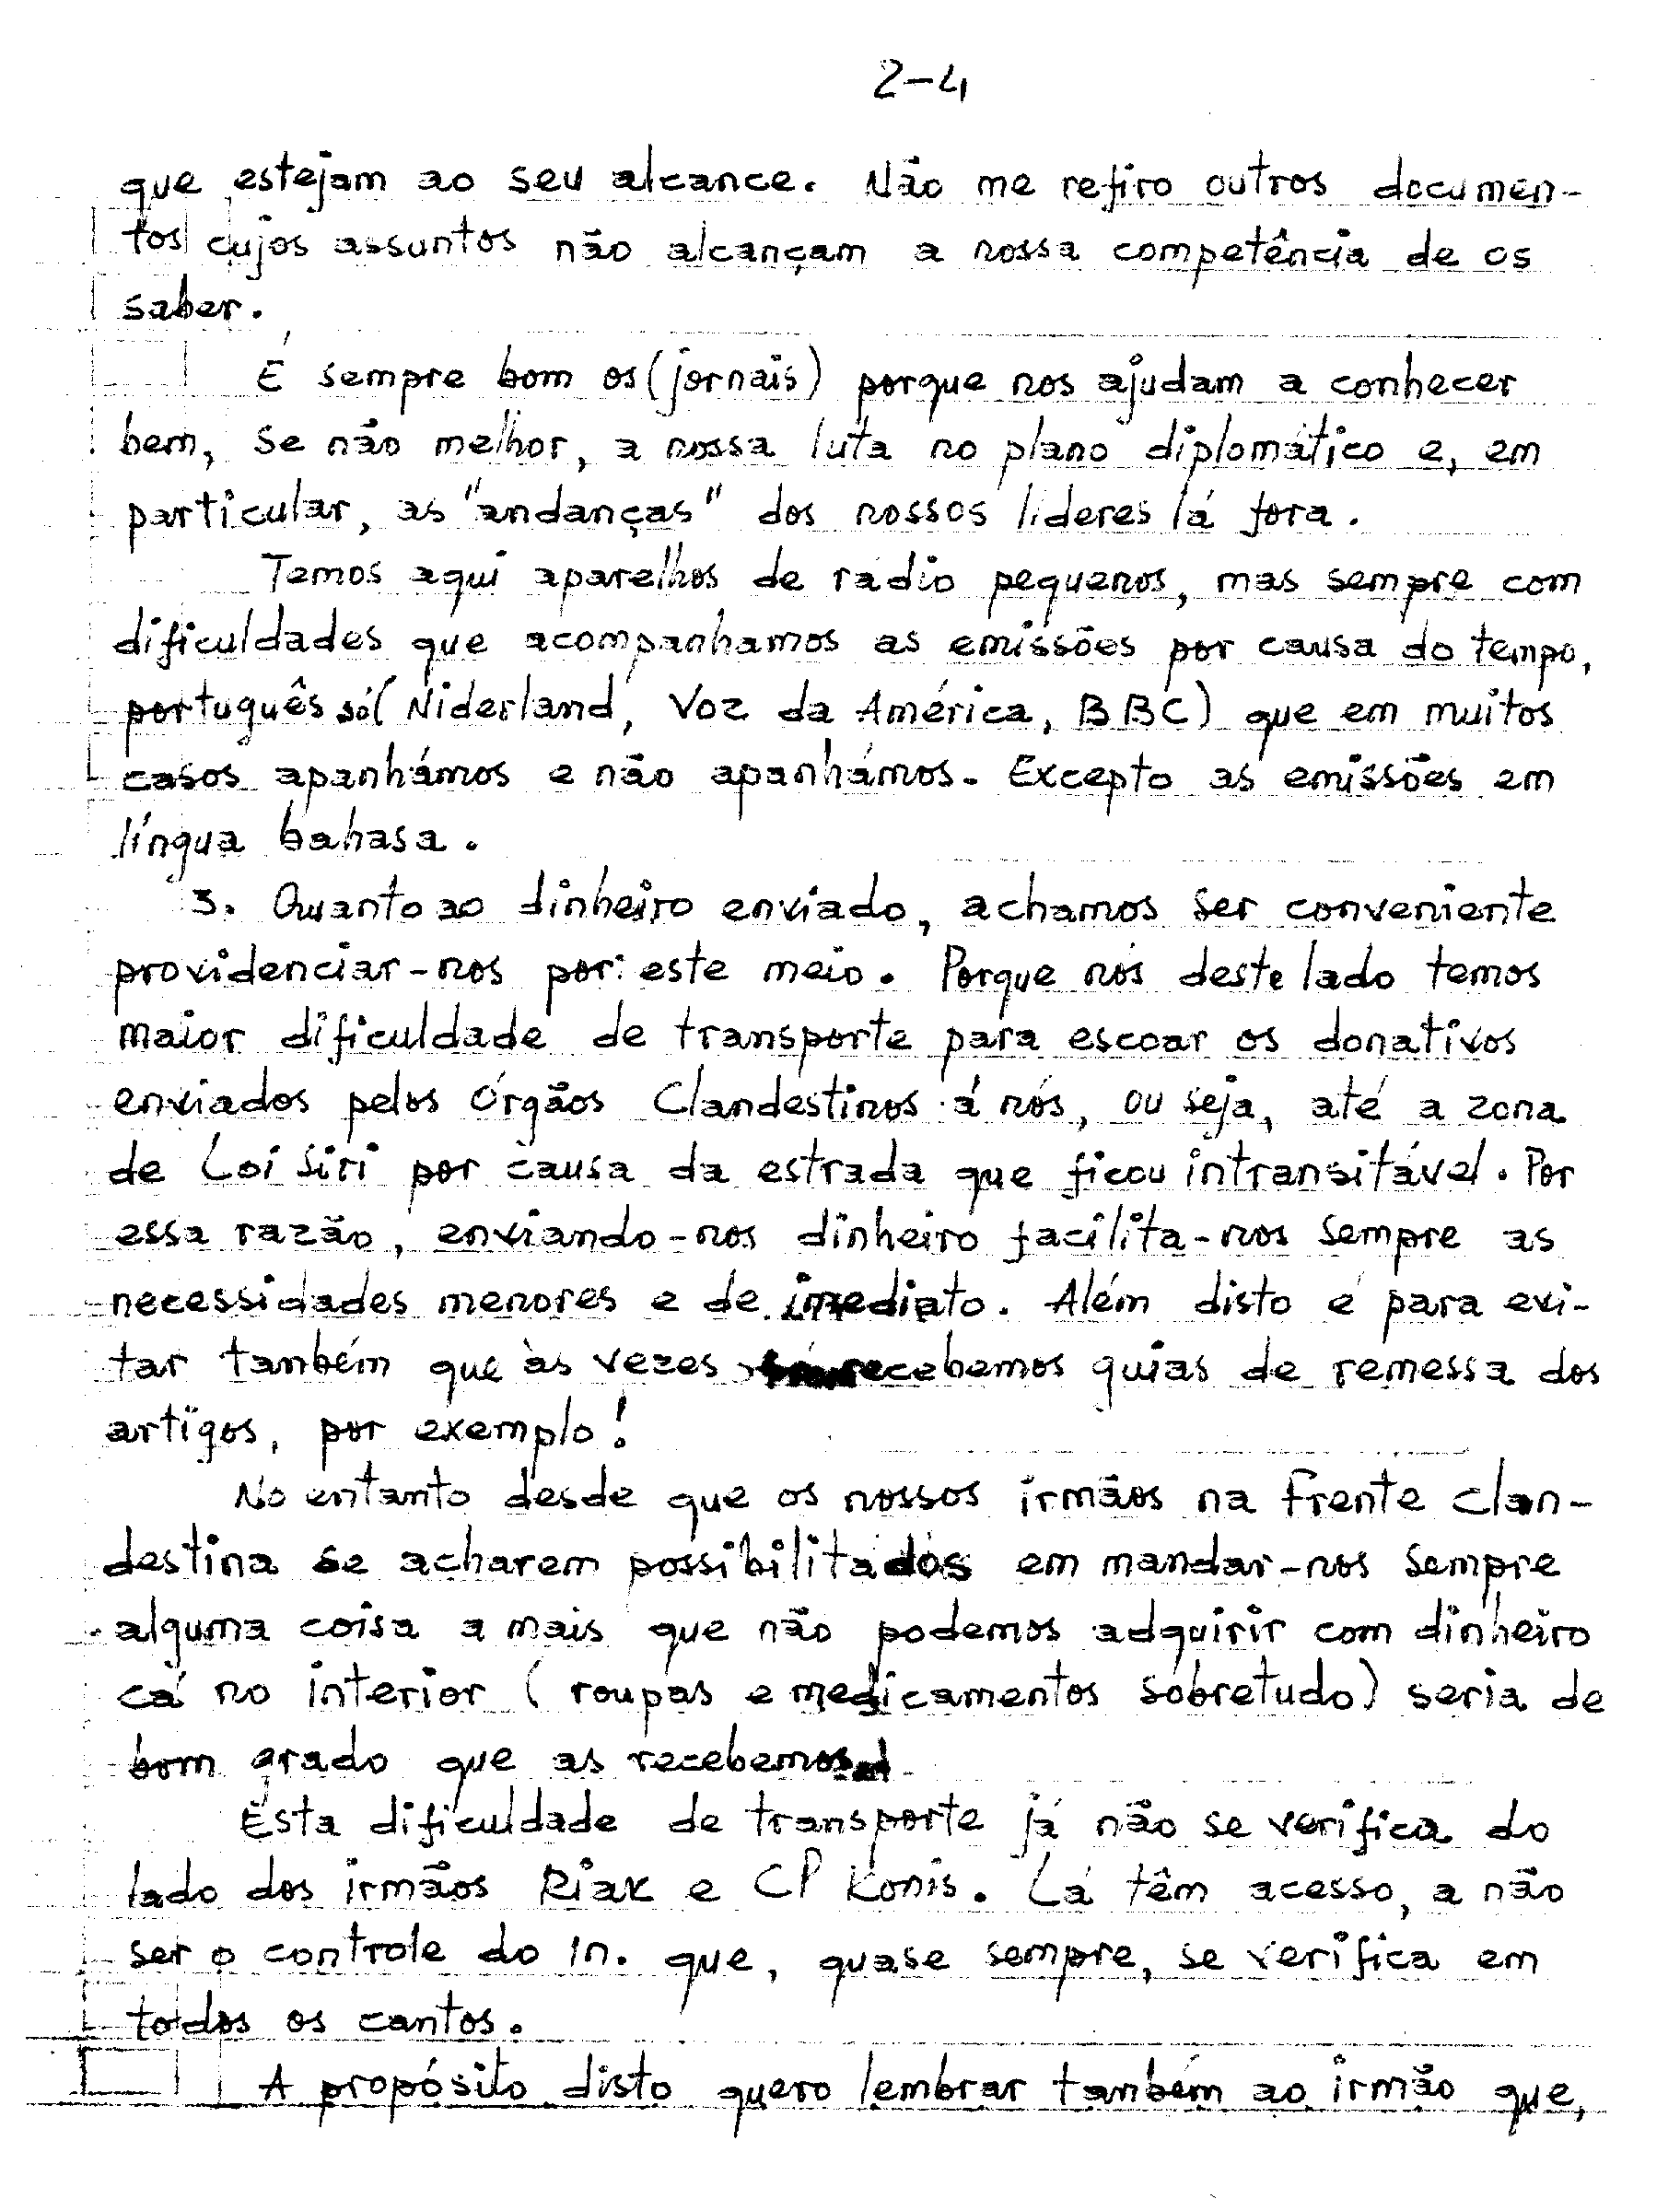 2-4
que estejam ao seu alcance. Não me refiro outros documen-
tos cujos assuntos não alcançam a nossa competência de os
saber.
É sempre bom os (jornais) porque nos ajudam a conhecer
bem, se não melhor, a nossa luta no plano diplomático e, em
particular, as "andanças" dos nossos líderes lá fora.
Temos aqui aparelhos de rádio pequenos, mas sempre com
dificuldades que acompanhamos as emissões por causa do tempo,
português só (Niderland, Voz da América, BBC) que em muitos
casos apanhámos e não apanhámos. Excepto as emissões em
língua bahasa.
3. Quanto ao dinheiro enviado, achamos ser conveniente
providenciar-nos por este meio. Porque nós deste lado temos
maior dificuldade de transporte para escoar os donativos
enviados pelos Órgãos Clandestinos á nós, ou seja, até a zona
de Loi Siri por causa da estrada que ficou intransitável. Por
essa razão, enviando-nos dinheiro facilita-nos sempre as
necessidades menores e de imediato. Além disto é para evi-
tar também que às vezes recebemos guias de remessa dos
artigos, por exemplo!
No entanto desde que os nossos irmãos na Frente Clan-
destina se acharem possibilitados em mandar-nos sempre
alguma coisa a mais que não podemos adquirir com dinheiro
cá no interior (roupas e medicamentos sobretudo) seria de
bom grado que as recebemos
Esta dificuldade de transporte já não se verifica do
lado dos irmãos Riak e CP Konis. Lá têm acesso, a não
ser o controle do in. que, quase sempre, se verifica em
todos os cantos.
A propósito disto quero lembrar também ao irmão que,